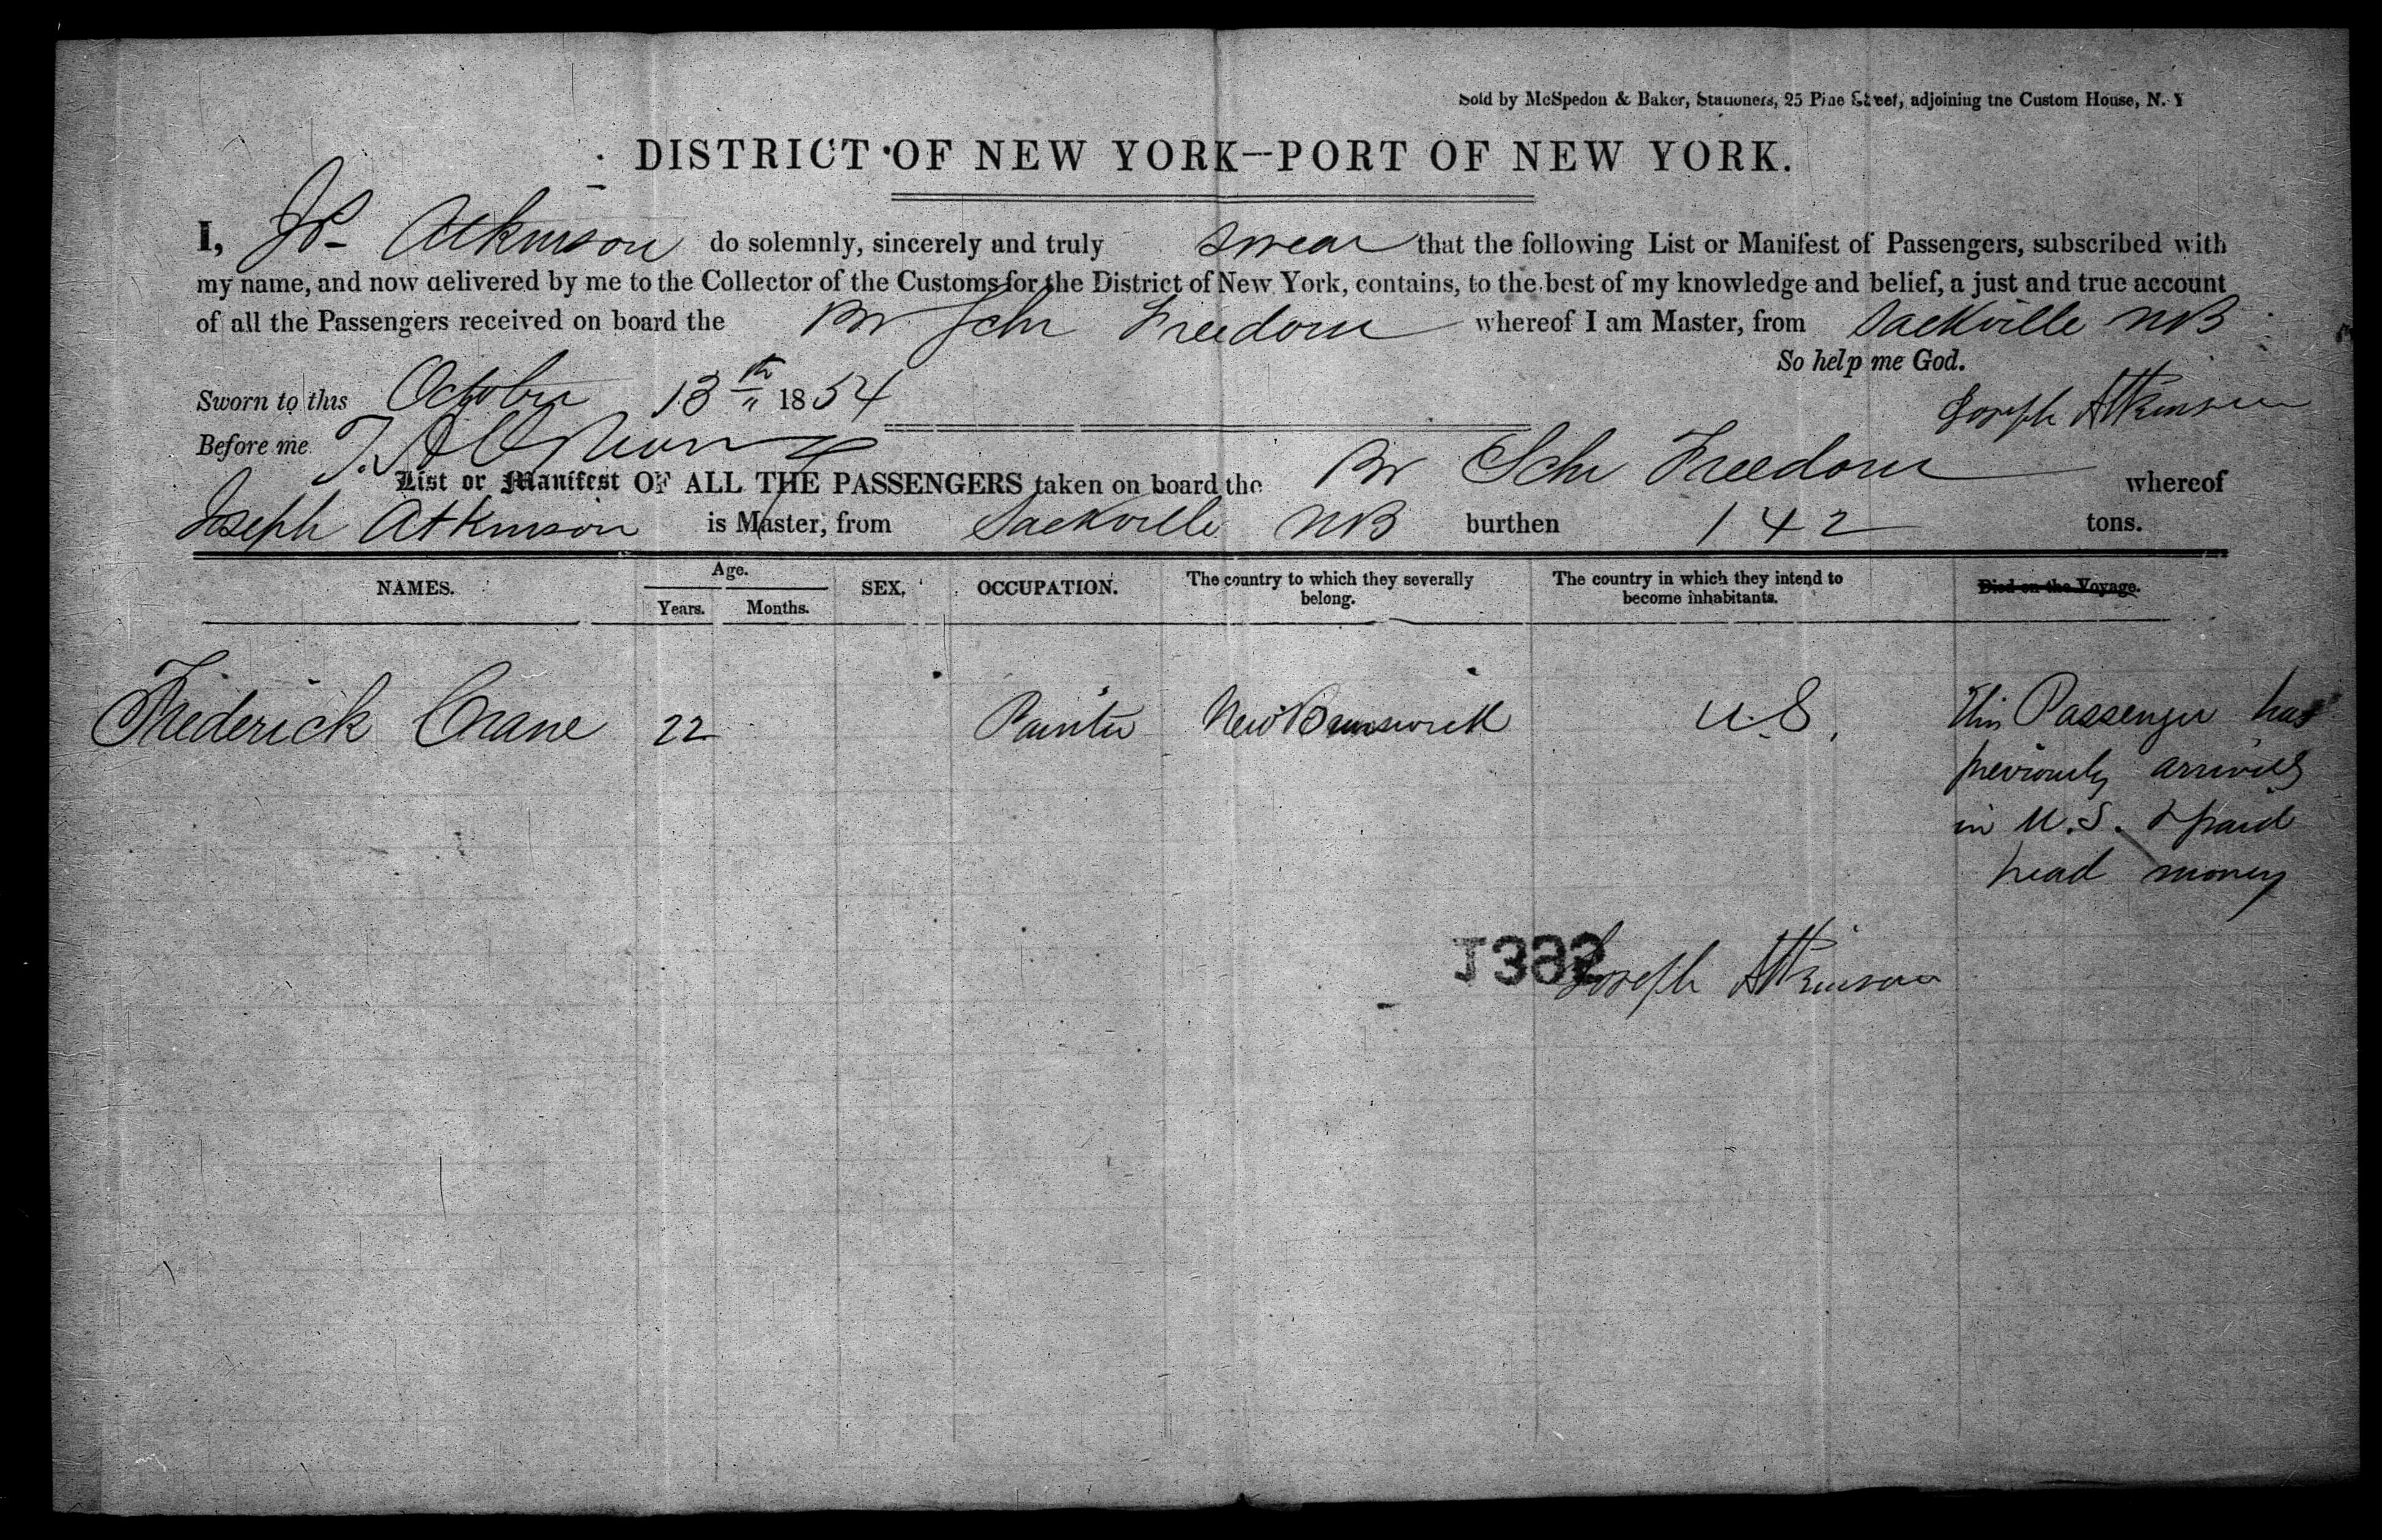 Sold by McSpedon & Baker, Stationers, 25 Pine Street, adjoining the Custom House, N. Y
DISTRICT OF NEW YORK—PORT OF NEW YORK.
I, Jos Atkinson do solemnly, sincerely and truly swear that the following List or Manifest of Passengers, subscribed with
my name, and now delivered by me to the Collector of the Customs for the District of New York, contains, to the best of my knowledge and belief, a just and true account
of all the Passengers received on board the Br Schr Freedom whereof I am Master, from Sackville NB
So help me God.
Sworn to this October 13th 1854
Joseph Atkinson
Before me
List or Manifest OF ALL THE PASSENGERS taken on board the Br Schr Freedom whereof
Joseph Atkinson is Master, from Sackville NB burthen 142 tons.
NAMES. Age. Years. Months. SEX. OCCUPATION. The country to which they severally belong. The country in which they intend to become inhabitants. Died on the Voyage.
Frederick Crane 22 Painter New Brunswick U.S. This Passenger has
previously arrived
in U.S. & paid
head money
1382
Joseph Atkinson